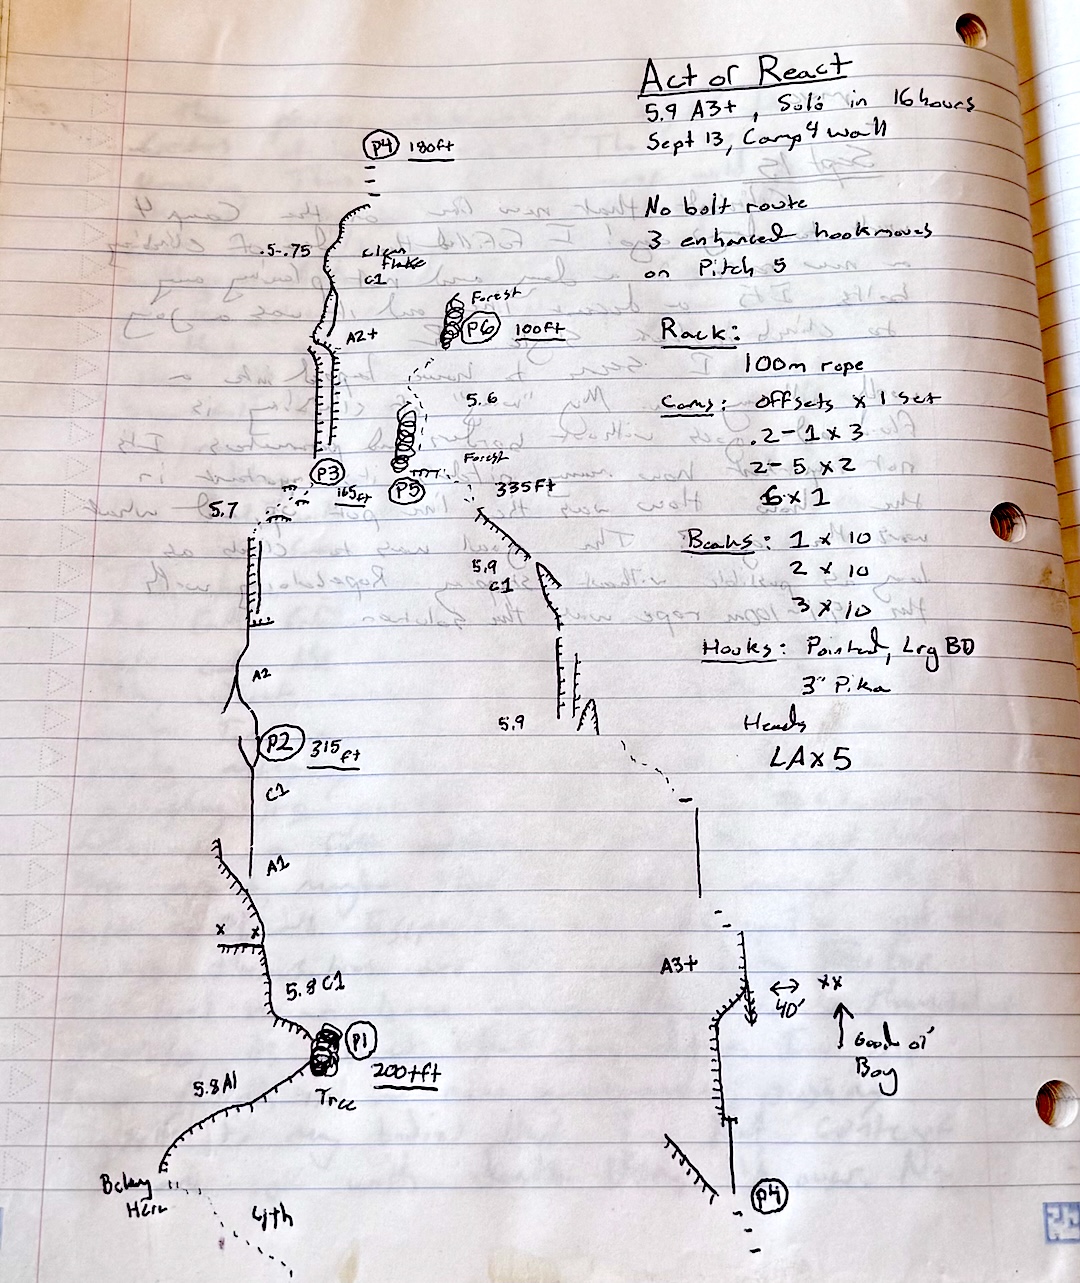 Act or React
5.9 A3+, Solo in 16 hours
Sept 13, Camp 4 wall
No bolt route
3 enhanced hook moves
on Pitch 5
Rack:
100m rope
Cams: offsets x 1 set
.2-1 x 3
2-5 x 2
6 x 1
Beaks: 1 x 10
2 x 10
3 x 10
Hooks: Pointed, Lrg BD
3" Pika
Heads
LA x 5
P4 180ft
.5-.75
clean
flake
C1
A2+
P3
165ft
5.7
A2
P2 315ft
C1
A1
x x
5.8 C1
P1
200+ft
Tree
5.8 A1
Belay
Here
4th
Forest
P6 100ft
5.6
Forest
P5
335ft
5.9
C1
5.9
A3+
↔ xx
40'
↑ Good ol'
Boy
P4